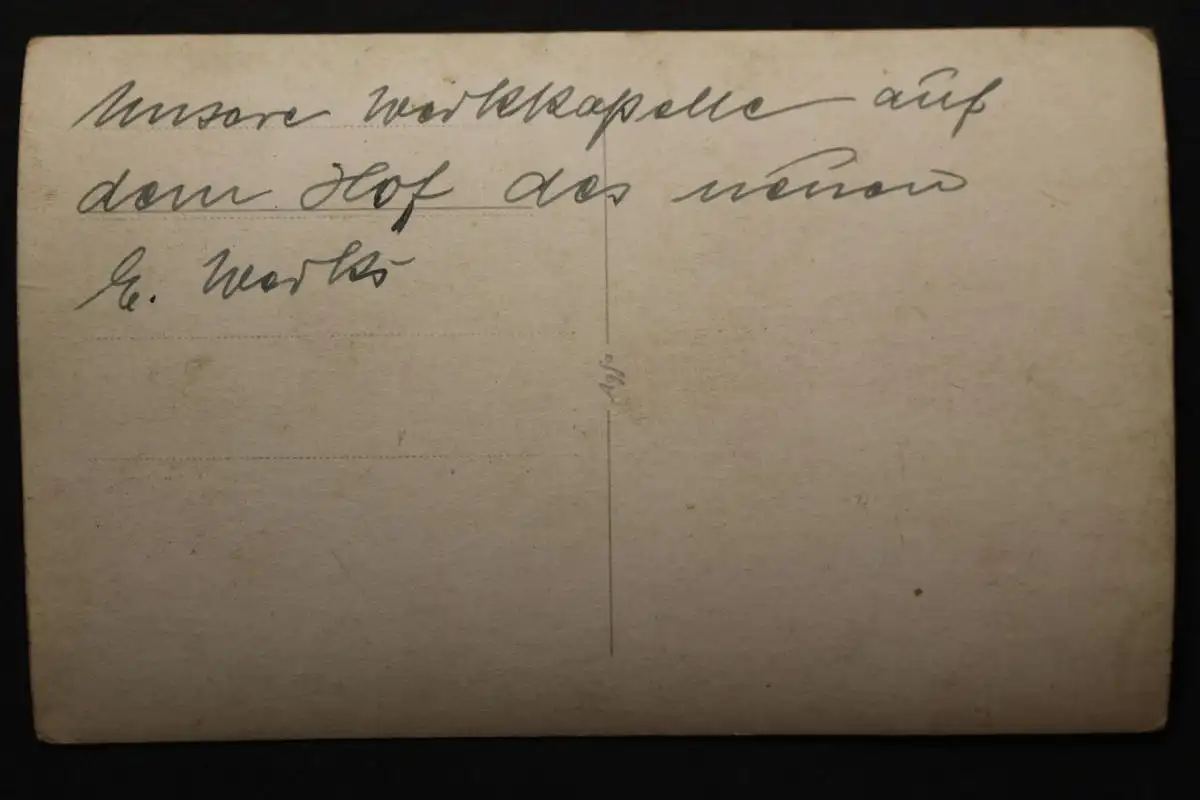 Unsere Werkkapelle auf
dem Hof des neuen
E. Werks
Agfa